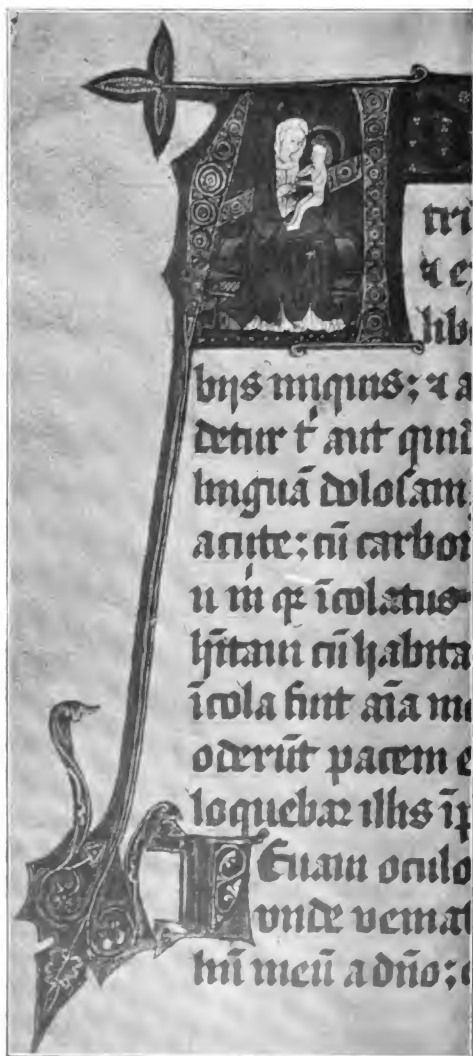 A
tri
⁊ ex
lib
bijs iniquis; ⁊ a
detur tͥ aut quid
linguā dolosam
acute; cū carbon
u mͥ qꝛ īcolatus
hītaui cū habita
īcola fuit aīa me
oderūt pacem e
loquebar illis īp
Leuaui oculo
vnde veniat
liū meū a dño;